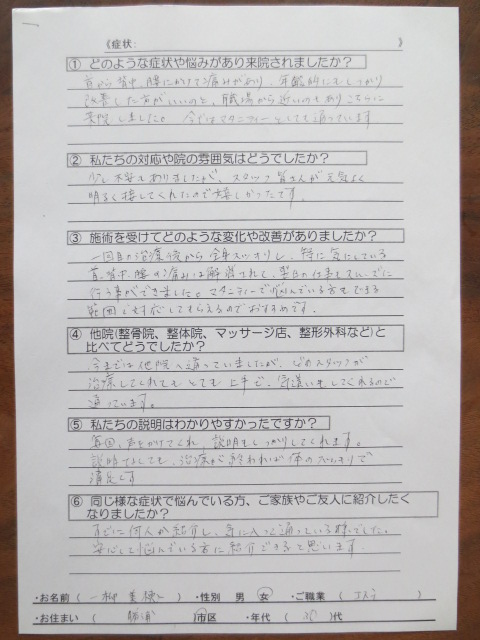 《症状: 》
① どのような症状や悩みがあり来院されましたか？
首から背中、腰にかけて痛みがあり、年齢的にもしっかり
改善した方がいいのと、職場から近いのもありこちらに
来院しました。 今ではマタニティーとしても通っています
② 私たちの対応や院の雰囲気はどうでしたか？
少し不安もありましたが、スタッフ皆さんが元気よく
明るく接してくれたので嬉しかったです。
③ 施術を受けてどのような変化や改善がありましたか？
一回目の治療後から全身スッキリし、特に気にしている
首、背中、腰の痛みは解消されて、翌日の仕事もスムーズに
行う事ができました。マタニティーで悩んでいる方もできる
範囲で対応してもらえるのでおすすめです。
④ 他院(整骨院、整体院、マッサージ店、整形外科など)と
比べてどうでしたか？
今までは他院へ通っていましたが、どのスタッフが
治療してくれてもとても上手で、気遣いもしてくれるので
通っています。
⑤ 私たちの説明はわかりやすかったですか？
毎回、声をかけてくれ、説明もしっかりしてくれます。
説明なしでも、治療が終われば体のスッキリで
満足です
⑥ 同じ様な症状で悩んでいる方、ご家族やご友人に紹介したく
なりましたか？
すでに何人か紹介し、気に入って通っている様でした。
安心して悩んでいる方に紹介できると思います。
・お名前 ( 一柳 ) ・性別 男 女 ・ご職業 ( )
・お住まい ( ) 市区 ・年代 ( 30 )代